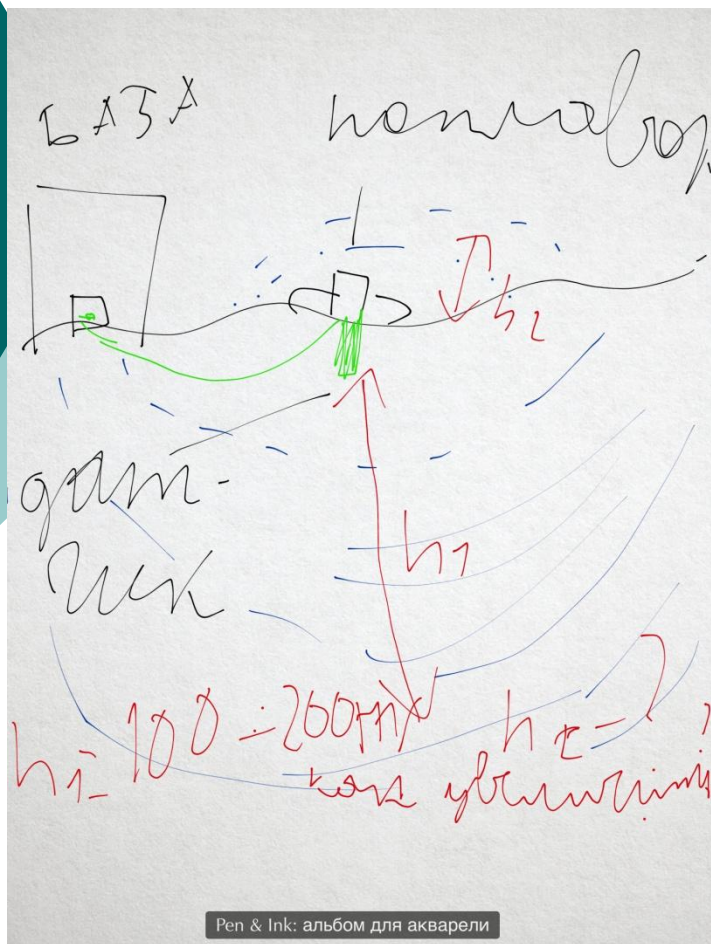 БАЗА
h2
дат-
чик
h1
h1= 100÷200m h2-?
как увеличить
Pen & Ink: альбом для акварели